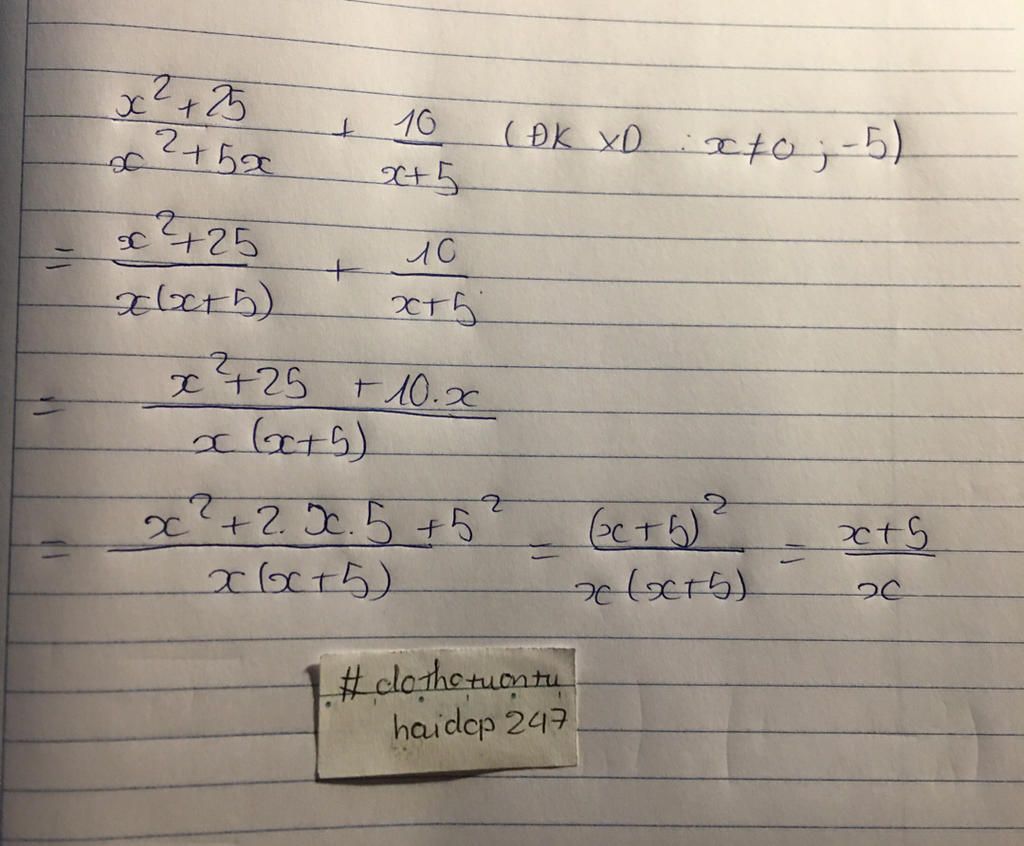 x²+25/x²+5x + 10/x+5 (ĐK XD : x≠0 ; -5)
= x²+25/x(x+5) + 10/x+5
= x²+25 +10.x/x(x+5)
= x²+2.x.5+5²/x(x+5) = (x+5)²/x(x+5) = x+5/x
haidcp 247